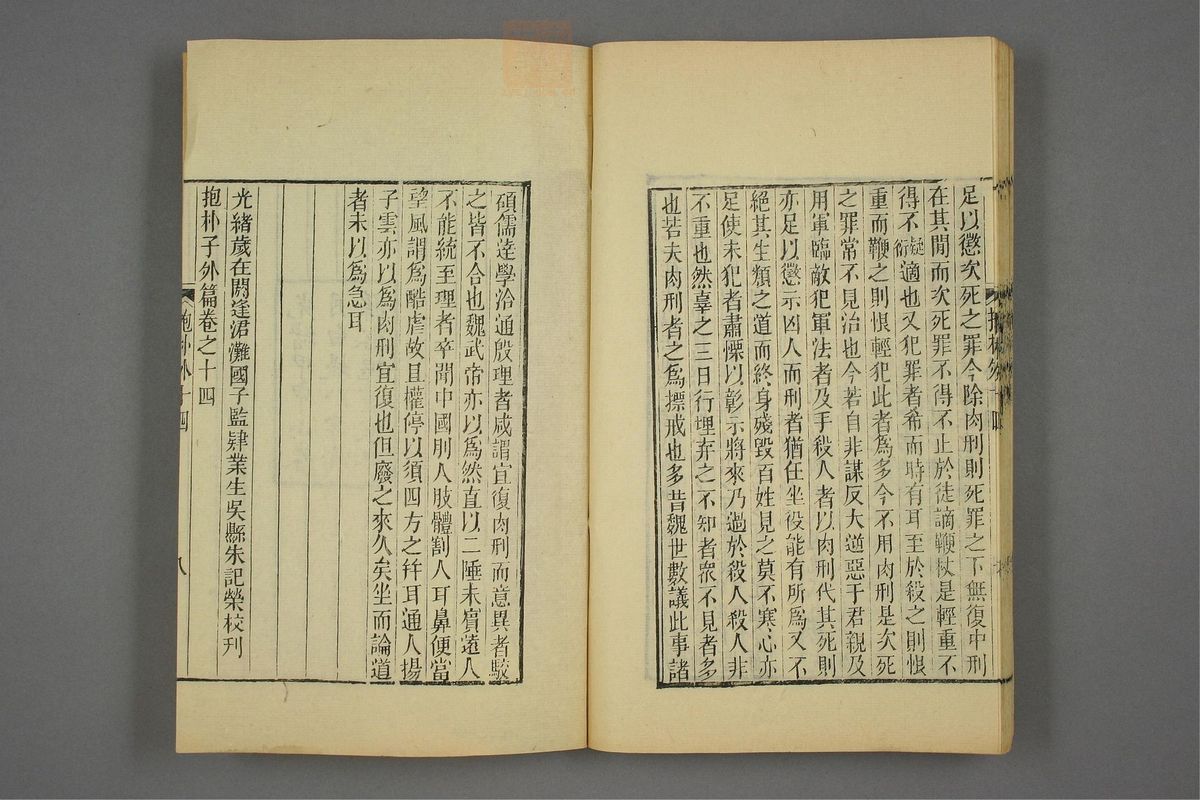 足以懲次死之罪今除肉刑則死罪之下無復中刑
在其閒而次死罪不得不止於徒謫鞭杖是輕重不
得不適也又犯罪者希而時有耳至於殺之則恨
重而鞭之則恨輕犯此者為多今不用肉刑是次死
之罪常不見治也今若自非謀反大逆惡于君親及
用軍臨敵犯軍法者及手殺人者以肉刑代其死則
亦足以懲示凶人而刑者猶任坐役能有所為又不
絕其生類之道而終身殘毀百姓見之莫不寒心亦
足使未犯者肅慄以彰示將來乃過於殺人殺人非
不重也然辜之三日行埋弃之不知者眾不見者多
也若夫肉刑者之為摽戒也多昔魏世數議此事諸
碩儒達學洽通殷理者咸謂宜復肉刑而意異者駮
之皆不合也魏武帝亦以為然直以二陲未賓遠人
不能統至理者卒聞中國刖人肢體割人耳鼻便當
望風謂為酷虐故且權停以須四方之幷耳通人揚
子雲亦以為肉刑宜復也但廢之來久矣坐而論道
者未以為急耳
光緒歲在閼逢涒灘國子監肄業生吳縣朱記榮校刊
抱朴子外篇卷之十四
抱朴外十四
八